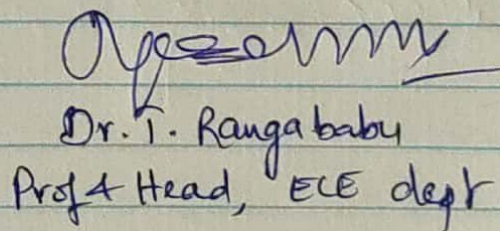 Dr. T. Rangababu
Prof & Head, ECE dept